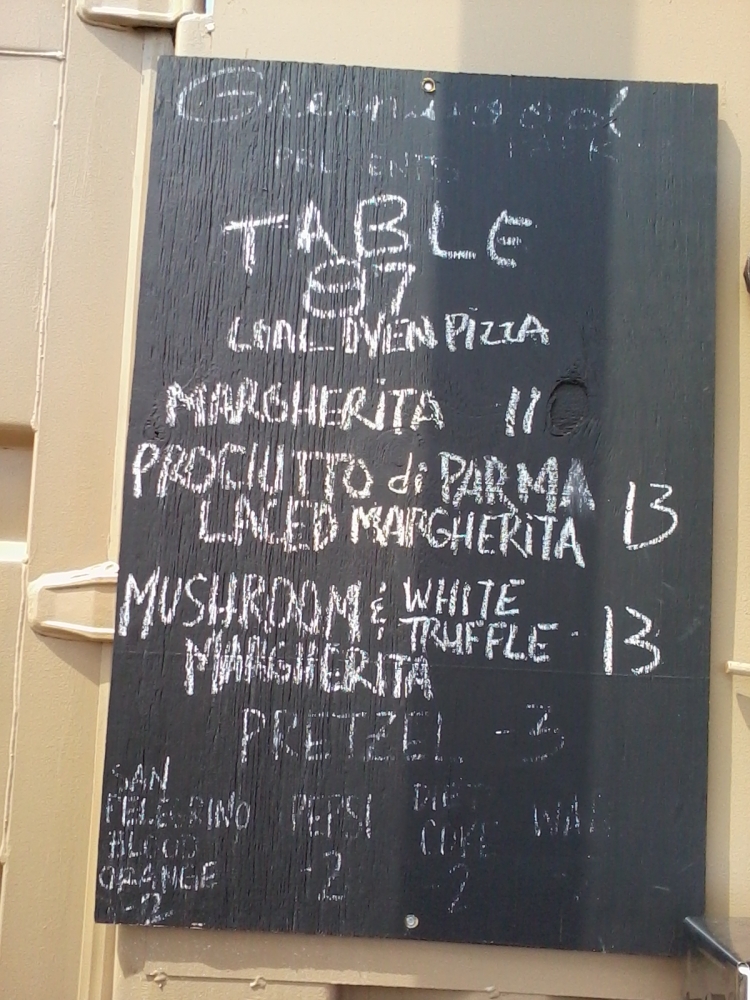 Greenwood Park
PRESENTS
TABLE
87
COAL OVEN PIZZA
MARGHERITA 11
PROCIUTTO di PARMA
LACED MARGHERITA 13
MUSHROOM & WHITE
TRUFFLE - 13
MARGHERITA
PRETZEL - 3
SAN
PELEGRINO
BLOOD
ORANGE
-2
PEPSI
-2
DIET
COKE
-2